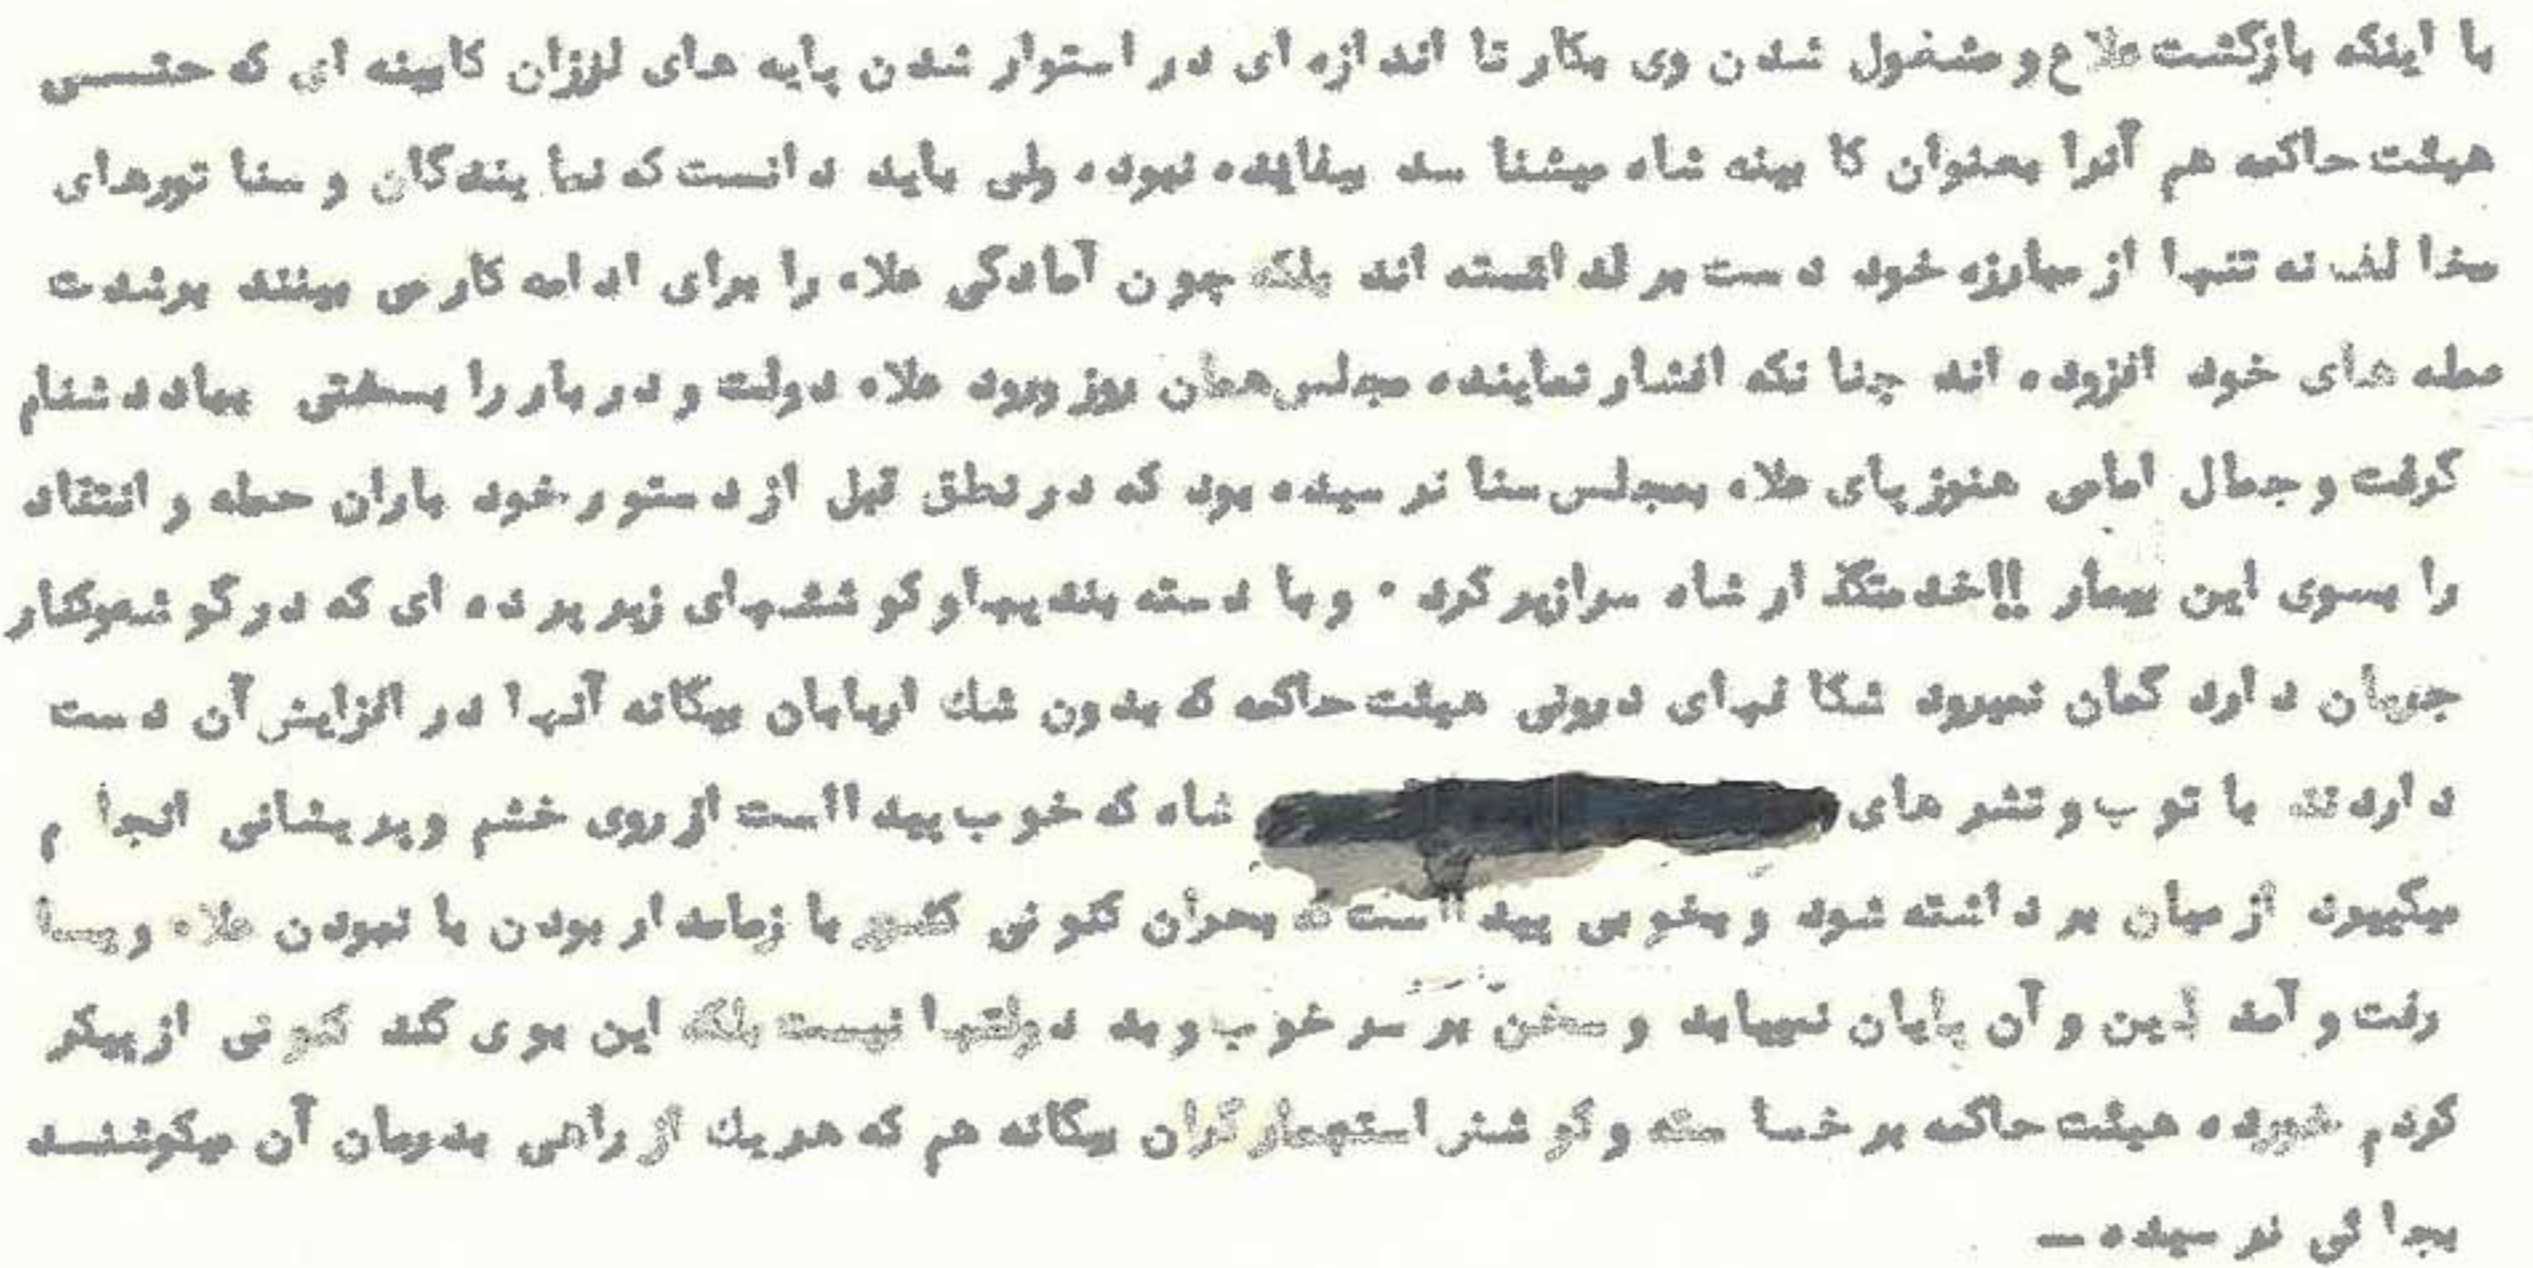 با اینکه بازگشت علاء و مشغول شدن وی بکار تا اندازه ای در استوار شدن پایه های لرزان کابینه ای که حتسی
هیئت حاکمه هم آنرا بعنوان کا بینه شاه میشنا سد بیفایده نبوده ولی باید دانست که نما یندگان و سنا تورهای
مخا لف نه تنها از مبارزه خود دست بر نداشته اند بلکه چون آمادگی علاء را برای ادامه کار می بینند برشدت
حمله های خود افزوده اند چنا نکه افشار نماینده مجلس همان روز ورود علاء دولت و دربار را بسختی بباددشنام
گرفت و جمال امامی هنوز پای علاء بمجلس سنا نر سیده بود که در نطق قبل از دستو ر خود باران حمله و انتقاد
را بسوی این بیمار !!خدمتگذ ار شاه سرازیر کرد ۰ وبا دسته بندیهاو کو ششهای زیر پر ده ای که در گو شهوکنار
جریان دارد گمان نمیرود شکا فهای درونی هیئت حاکمه که بدون شك اربابان بیگانه آنها در افزایش آن دست
دارند با تو پ و تشر های شاه که خو ب پید ااست از روی خشم و پر یشانی انجا م
میگیرد از میان بر داشته شود و بخو بی پید ااست که بحران کنو نی کشور با زمامد ار بودن یا نبودن علاء و یسا
رفت و آمد این و آن پایان نمییابد و سخن بر سر خو ب و بد دولتها نیست بلکه این بو ی گند کنو نی از پیکر
کودم خورده هیئت حاکمه بر خسا سته و کو شش استعمار گران بیگانه هم که هر یك از راهی بدرمان آن میکوشنسد
بجا ئی نر سیده ــ